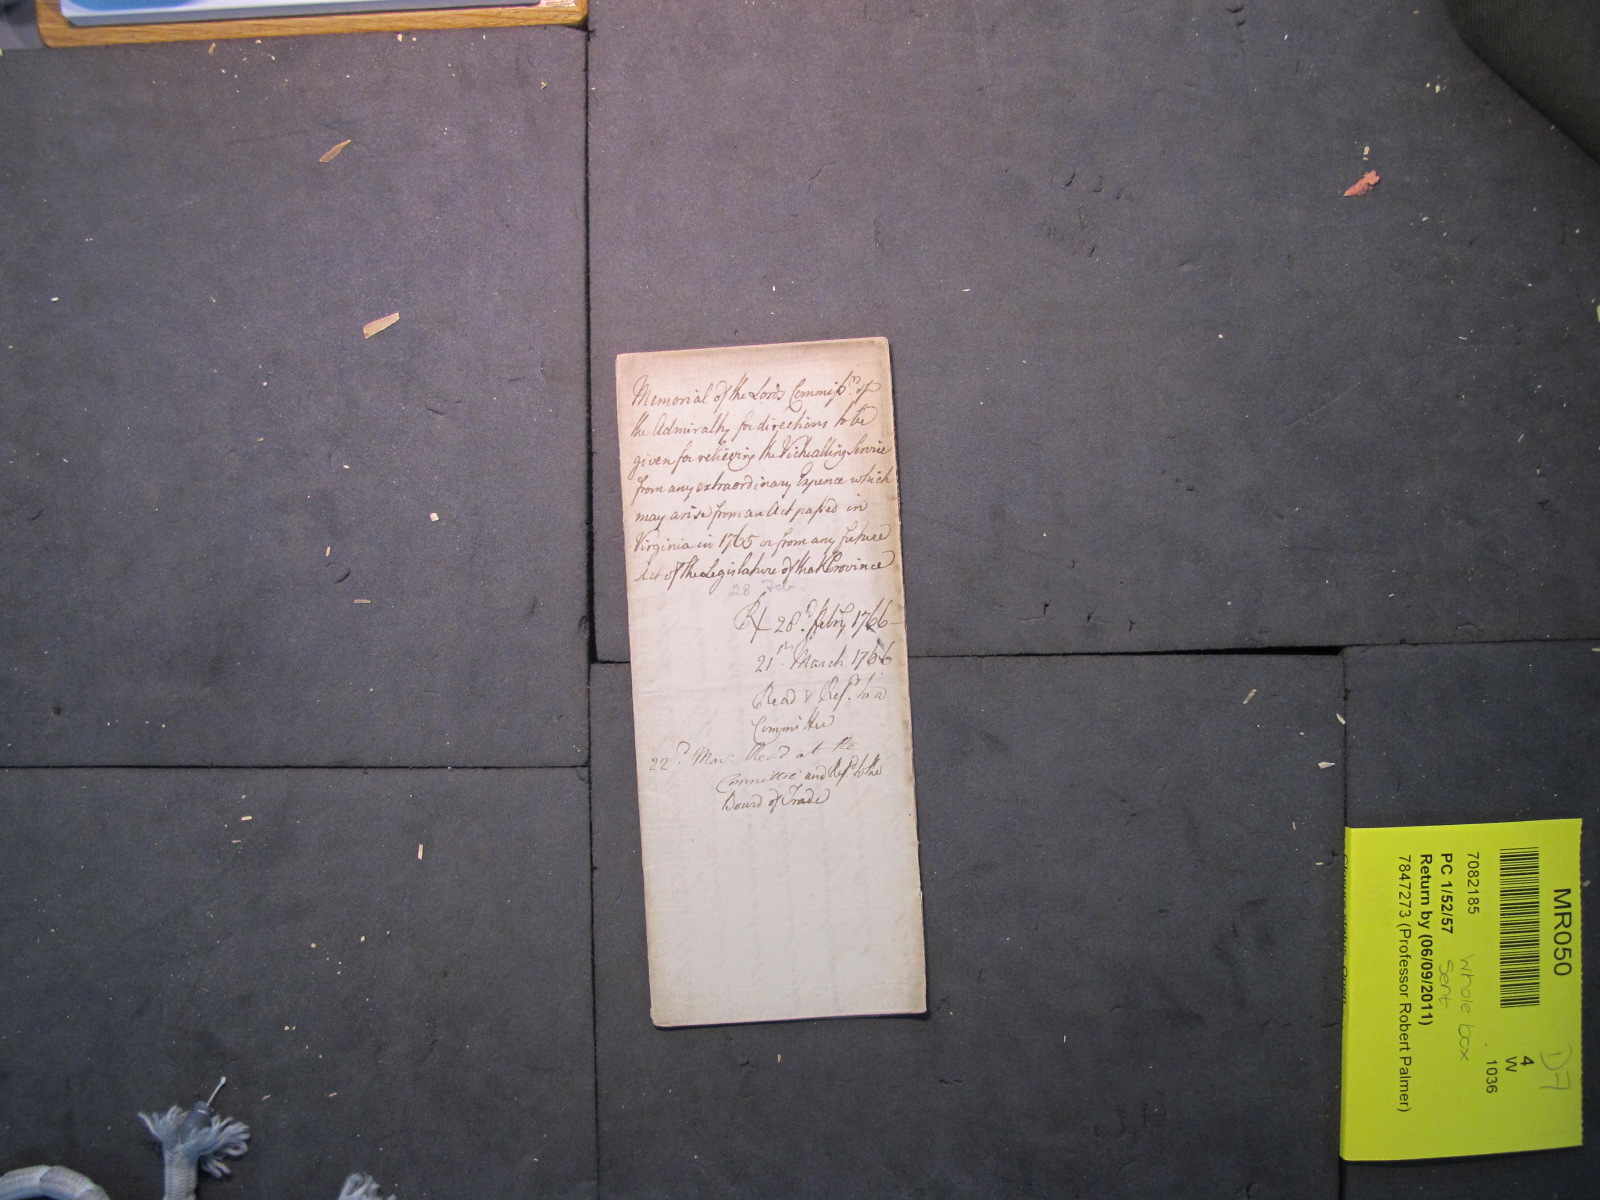 Memorial of the Lords Commiss.rs of
the Admiralty for directions to be
given for relieving the Victualling Service
from any extraordinary Expence which
may arise from an Act passed in
Virginia in 1765 or from any future
Act of the Legislature of that Province
28 Feb
Rx 28.th Febry 1766
21st March 1766
Read & Ref.d to a
Committee
22.d Mar: Read at the
Committee and Ref.d to the
Board of Trade
MR050
D7
4
W
1036
7082185
whole box
PC 1/52/57
sent
Return by (06/09/2011)
7847273 (Professor Robert Palmer)